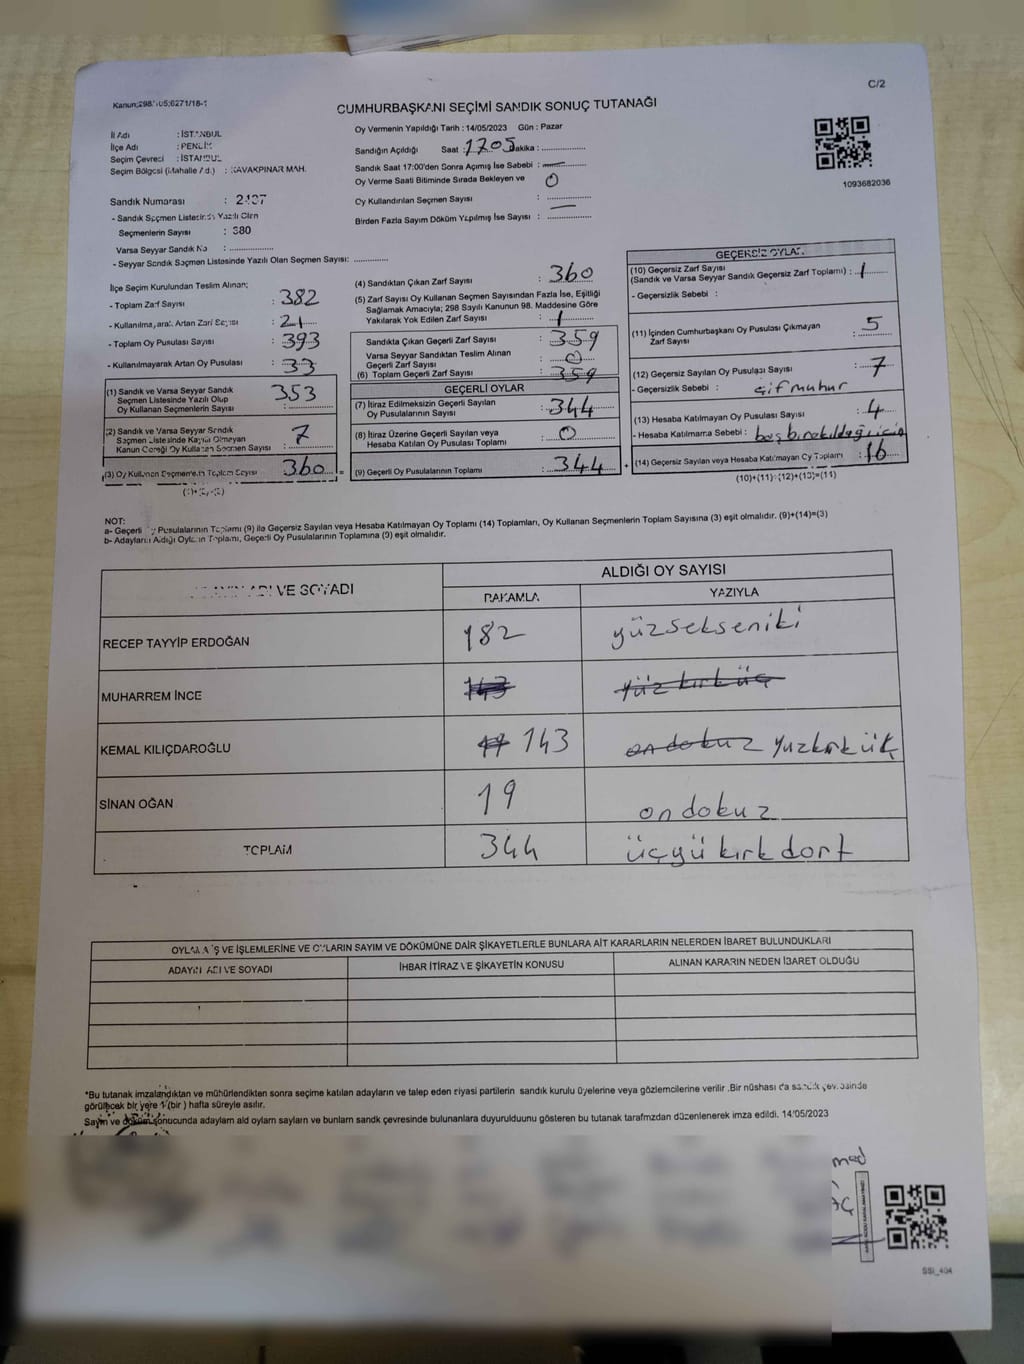 C/2
CUMHURBAŞKANI SEÇİMİ SANDIK SONUÇ TUTANAĞI
1093682036
İl Adı : İSTANBUL
İlçe Adı : PENDİK
Seçim Çevresi : İSTANBUL
Seçim Bölgesi (Mahalle / d.) : KAVAKPINAR MAH.
Oy Vermenin Yapıldığı Tarih : 14/05/2023 Gün : Pazar
Sandığın Açıldığı Saat : 1705 Dakika :
Sandık Saat 17:00'den Sonra Açımış İse Sebebi : —
Oy Verme Saati Bitiminde Sırada Bekleyen ve
Oy Kullandırılan Seçmen Sayısı : 0
Birden Fazla Sayım Döküm Yapılmış İse Sayısı : —
Sandık Numarası :
- Sandık Seçmen Listesinde Yazılı Olan
Seçmenlerin Sayısı : 380
Varsa Seyyar Sandık No :
- Seyyar Sandık Seçmen Listesinde Yazılı Olan Seçmen Sayısı:
İlçe Seçim Kurulundan Teslim Alınan;
- Toplam Zarf Sayısı : 382
- Kullanılmayarak Artan Zarf Sayısı : 21
- Toplam Oy Pusulası Sayısı : 393
- Kullanılmayarak Artan Oy Pusulası : 33
(1) Sandık ve Varsa Seyyar Sandık
Seçmen Listesinde Yazılı Olup
Oy Kullanan Seçmenlerin Sayısı : 353
(2) Sandık ve Varsa Seyyar Sandık
Seçmen Listesinde Kaydı Olmayan
Kanun Gereği Oy Kullanan Seçmen Sayısı : 7
(3) Oy Kullanan Seçmenlerin Toplam Sayısı : 360 =
(4) Sandıktan Çıkan Zarf Sayısı : 360
(5) Zarf Sayısı Oy Kullanan Seçmen Sayısından Fazla İse, Eşitliği
Sağlamak Amacıyla; 298 Sayılı Kanunun 98. Maddesine Göre
Yakılarak Yok Edilen Zarf Sayısı : 1
Sandıkta Çıkan Geçerli Zarf Sayısı : 359
Varsa Seyyar Sandıktan Teslim Alınan
Geçerli Zarf Sayısı : 0
(6) Toplam Geçerli Zarf Sayısı : 359
GEÇERLİ OYLAR
(7) İtiraz Edilmeksizin Geçerli Sayılan
Oy Pusulalarının Sayısı : 344
(8) İtiraz Üzerine Geçerli Sayılan veya
Hesaba Katılan Oy Pusulası Toplamı : 0
(9) Geçerli Oy Pusulalarının Toplamı : 344 +
GEÇERSİZ OYLAR
(10) Geçersiz Zarf Sayısı
(Sandık ve Varsa Seyyar Sandık Geçersiz Zarf Toplamı) : 1
- Geçersizlik Sebebi :
(11) İçinden Cumhurbaşkanı Oy Pusulası Çıkmayan
Zarf Sayısı : 5
(12) Geçersiz Sayılan Oy Pusulası Sayısı : 7
- Geçersizlik Sebebi : çifmuhur
(13) Hesaba Katılmayan Oy Pusulası Sayısı : 4
- Hesaba Katılmama Sebebi : boş bırakıldığı için
(14) Geçersiz Sayılan veya Hesaba Katılmayan Oy Toplamı : 16
(10)+(11)+(12)+(13)=(14)
NOT:
a- Geçerli Oy Pusulalarının Toplamı (9) ile Geçersiz Sayılan veya Hesaba Katılmayan Oy Toplamı (14) Toplamları, Oy Kullanan Seçmenlerin Toplam Sayısına (3) eşit olmalıdır. (9)+(14)=(3)
b- Adayların Aldığı Oyların Toplamı, Geçerli Oy Pusulalarının Toplamına (9) eşit olmalıdır.
VE SOYADI
ALDIĞI OY SAYISI
RAKAMLA YAZIYLA
RECEP TAYYİP ERDOĞAN 182 yüzsekseniki
MUHARREM İNCE 143 yüz kırk üç
KEMAL KILIÇDAROĞLU 143 on dokuz yuzkırk üç
SİNAN OĞAN 19 on dokuz
TOPLAM 344 üçyü kırk dort
OYLAMA İŞ VE İŞLEMLERİNE VE OYLARIN SAYIM VE DÖKÜMÜNE DAİR ŞİKAYETLERLE BUNLARA AİT KARARLARIN NELERDEN İBARET BULUNDUKLARI
ADAYIN ADI VE SOYADI
İHBAR İTİRAZ VE ŞİKAYETİN KONUSU
ALINAN KARARIN NEDEN İBARET OLDUĞU
*Bu tutanak imzalandıktan ve mühürlendikten sonra seçime katılan adayların ve talep eden siyasi partilerin sandık kurulu üyelerine veya gözlemcilerine verilir .Bir nüshası da sandık çevresinde
görülecek bir yere 1 (bir ) hafta süreyle asılır.
Sayım ve döküm sonucunda adaylam ald oylam sayların ve bunlam sandk çevresinde bulunanlara duyurulduunu gösteren bu tutanak tarafmzdan düzenlenerek imza edildi. 14/05/2023
SSI_404